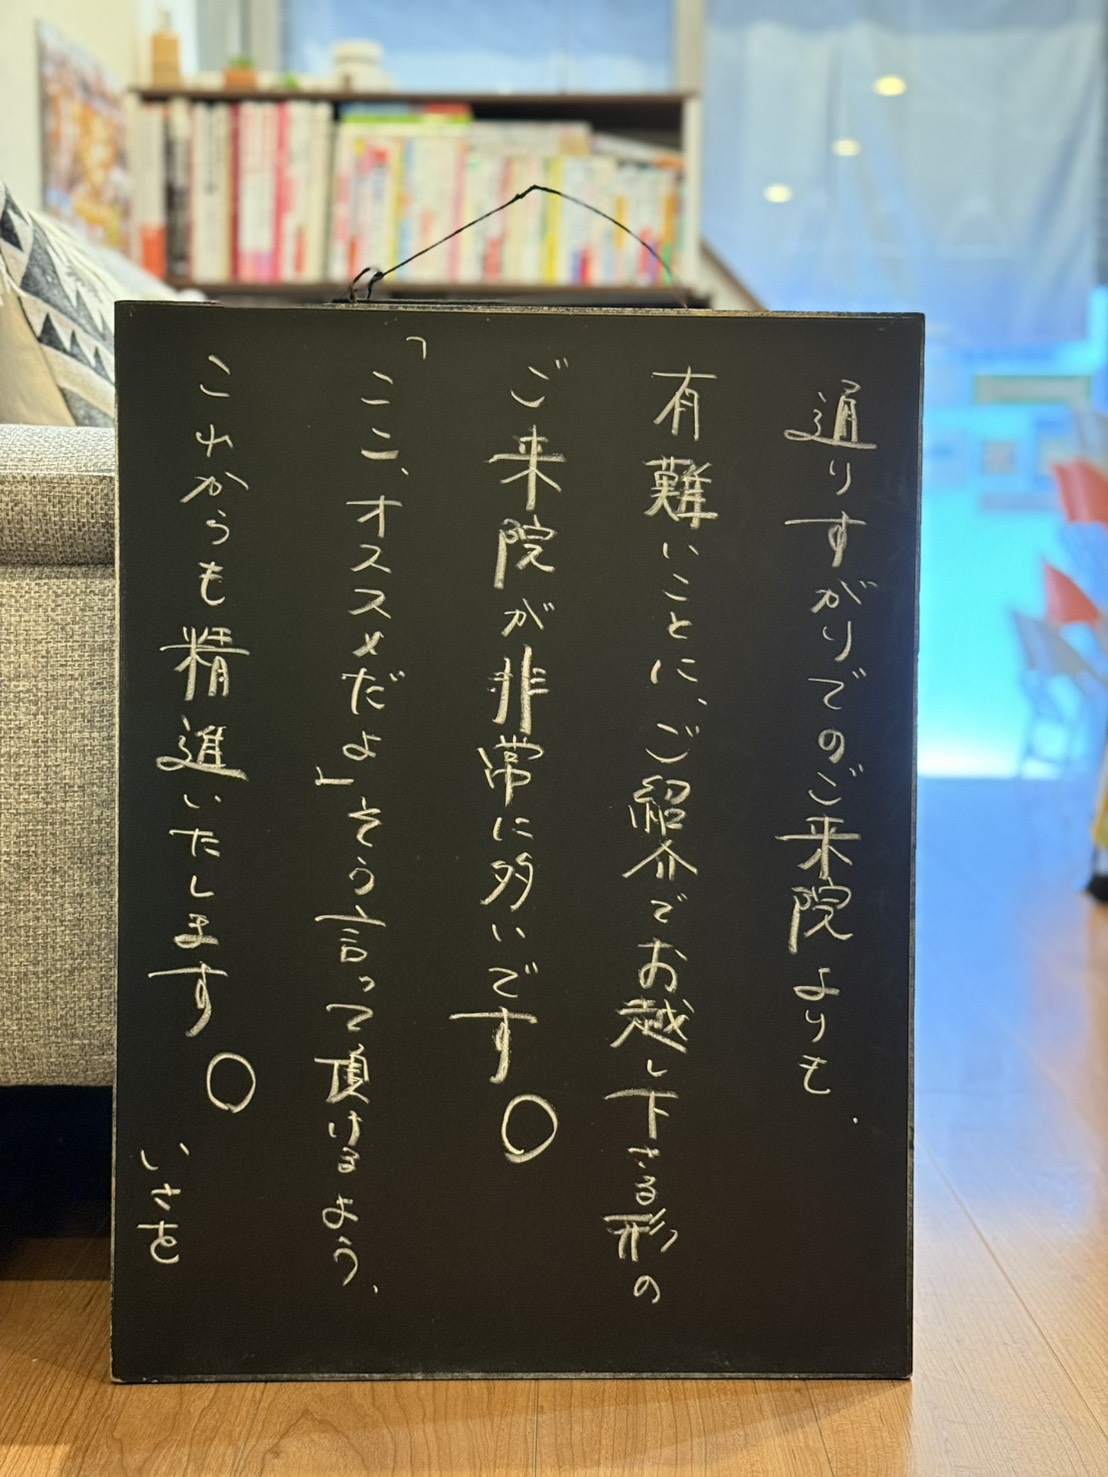 通りすがりでのご来院よりも、
有難いことに、ご紹介でお越し下さる形の
ご来院が非常に多いです。
「ここ、オススメだよ」そう言って頂けるよう、
これからも精進いたします。
いさを